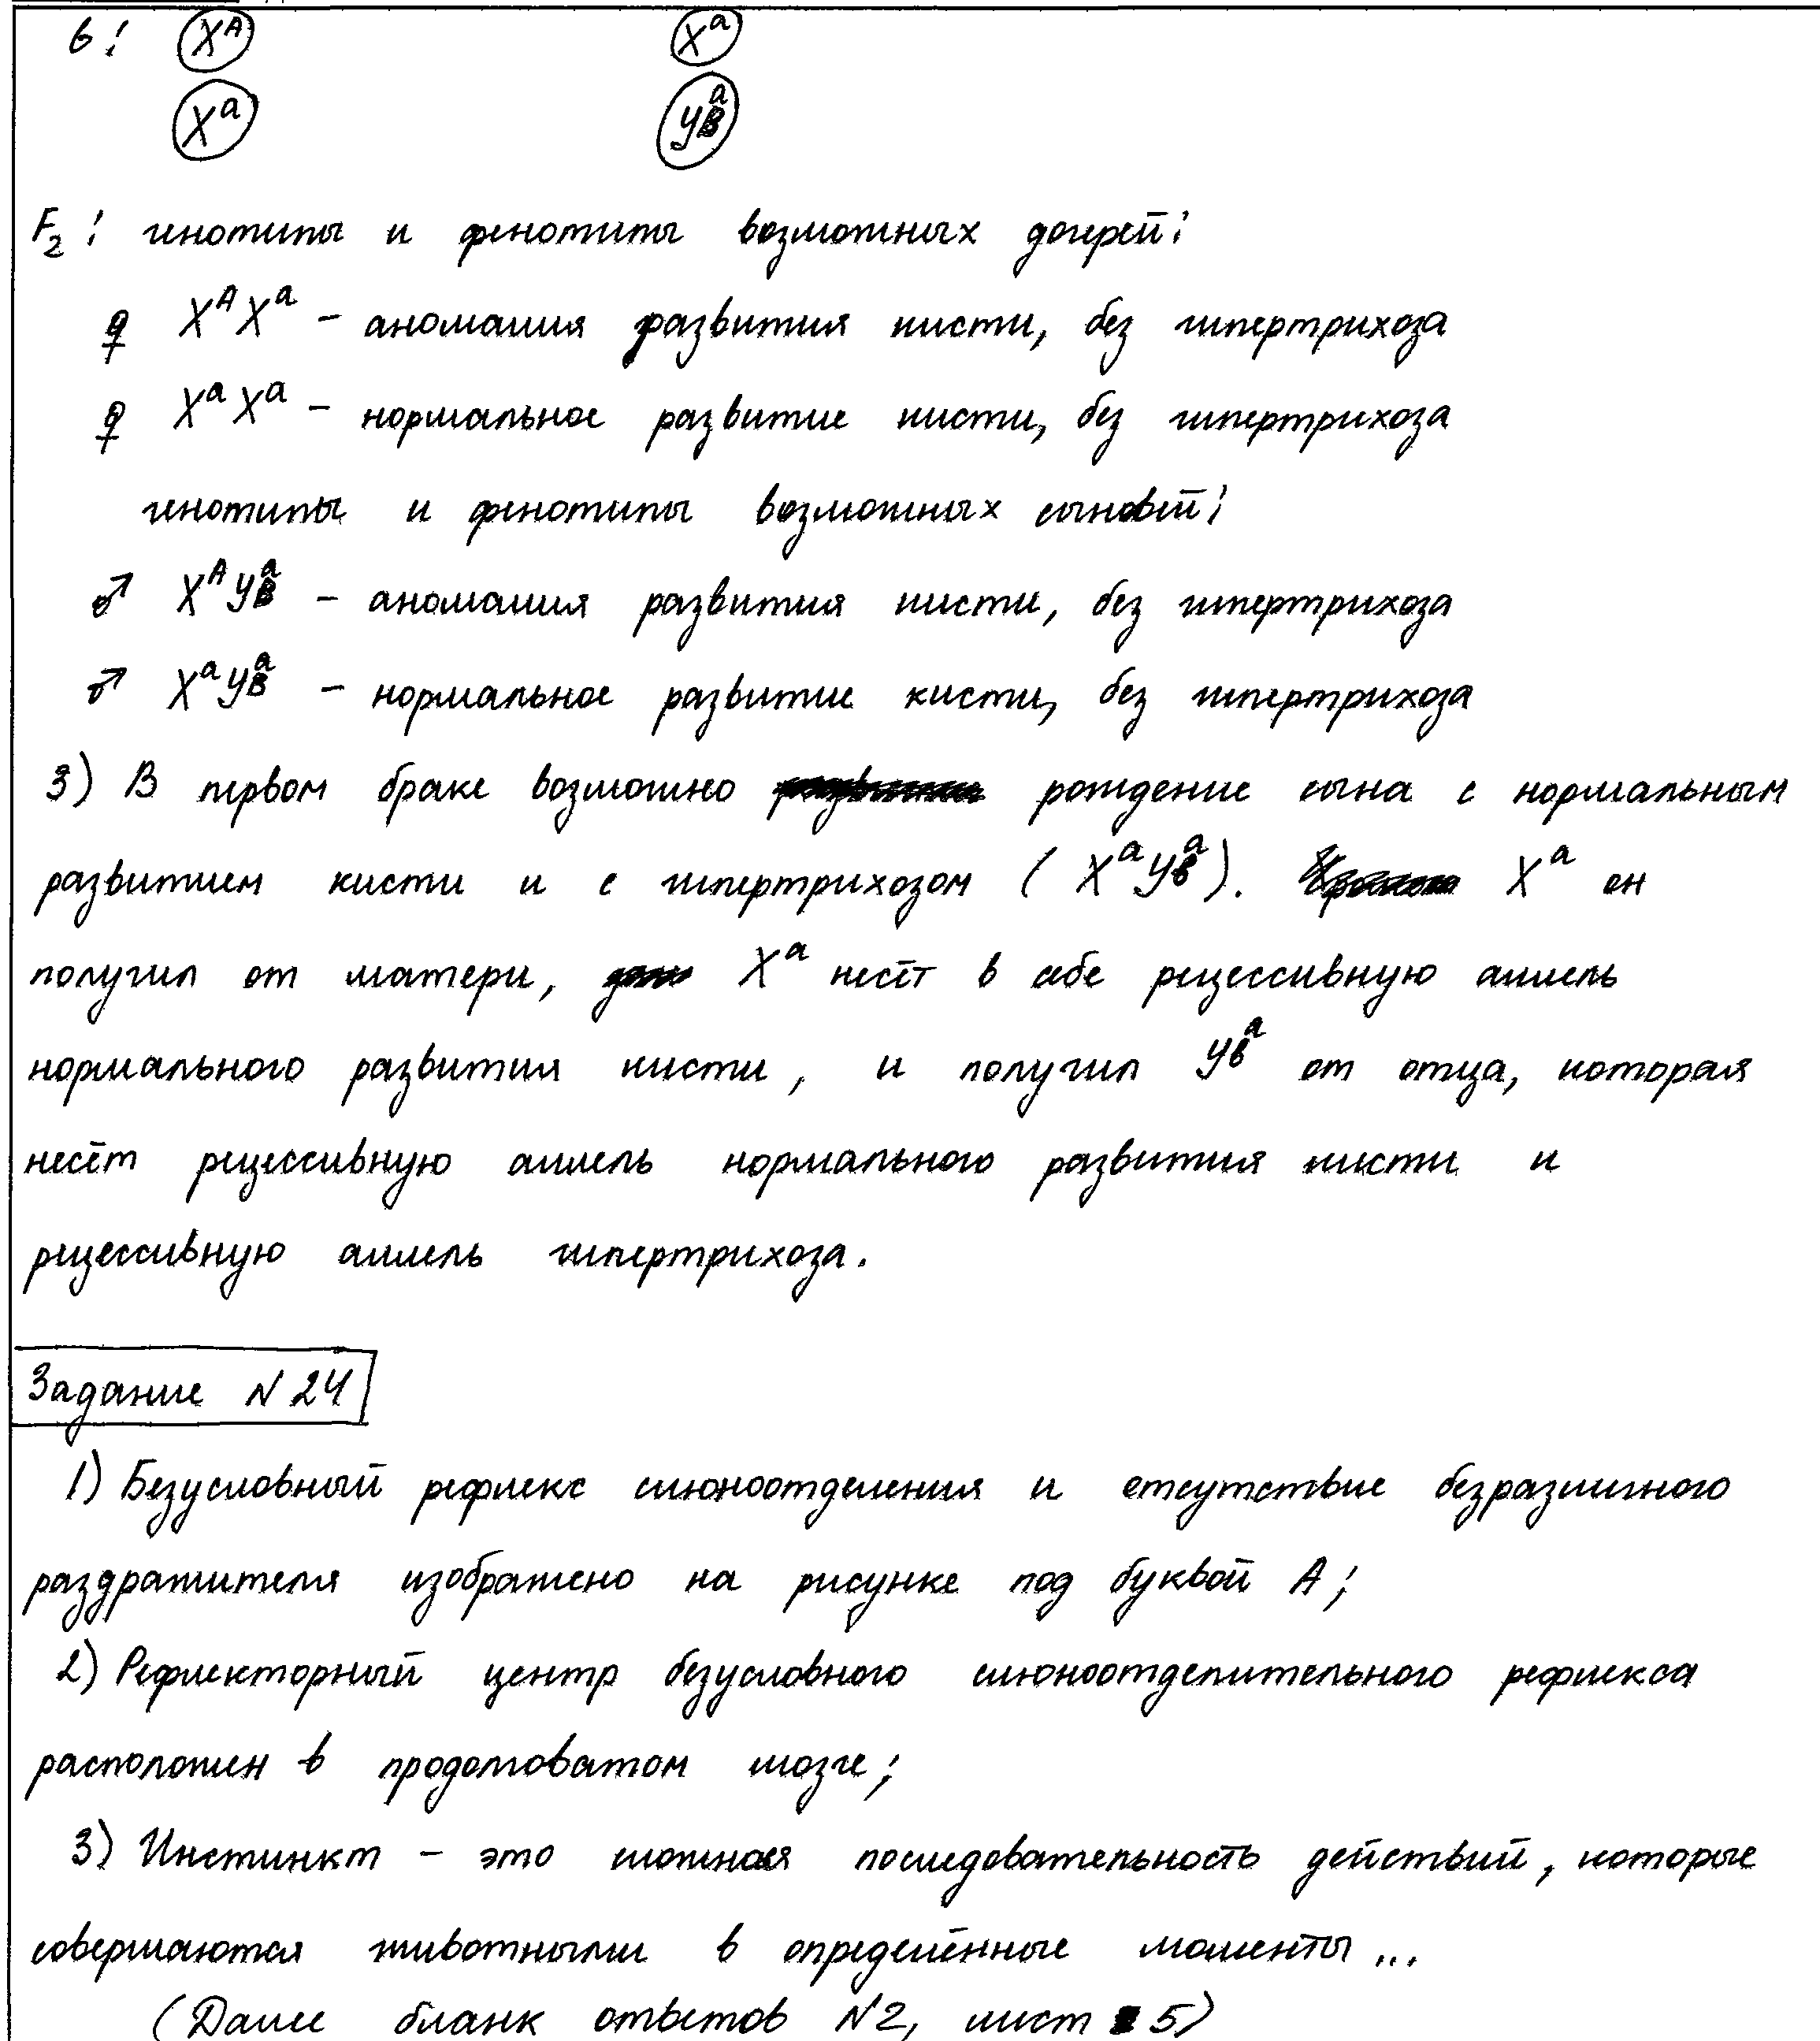 G: X^A X^a
X^a YB^a
F₂: генотипы и фенотипы возможных дочерей:
♀ X^A X^a – аномалия развития кисти, без гипертрихоза
♀ X^a X^a – нормальное развитие кисти, без гипертрихоза
генотипы и фенотипы возможных сыновей:
♂ X^A YB^a – аномалия развития кисти, без гипертрихоза
♂ X^a YB^a – нормальное развитие кисти, без гипертрихоза
3) В первом браке возможно рождение сына с нормальным
развитием кисти и с гипертрихозом (X^a Yв^a). X^a он
получил от матери, X^a несёт в себе рецессивную аллель
нормального развития кисти, и получил Yв^a от отца, которая
несёт рецессивную аллель нормального развития кисти и
рецессивную аллель гипертрихоза.
Задание N 24
1) Безусловный рефлекс слюноотделения и отсутствие безразличного
раздражителя изображено на рисунке под буквой А;
2) Рефлекторный центр безусловного слюноотделительного рефлекса
расположен в продолговатом мозге;
3) Инстинкт – это сложная последовательность действий, которые
совершаются животными в определённые моменты...
(Далее бланк ответов N2, лист 5)